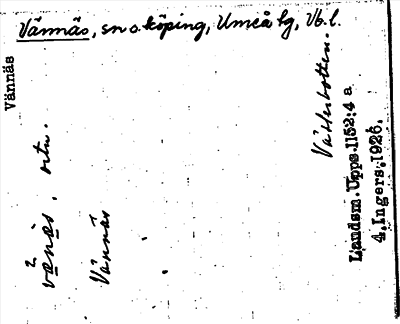 Vännäs, sn o. köping, Umeå lg, Vb. l.
Vännäs
vä̀näs, ortn.
Vännäs
Västerbotten.
Landsm. Upps. 1152:4 a
4. Ingers. 1926.